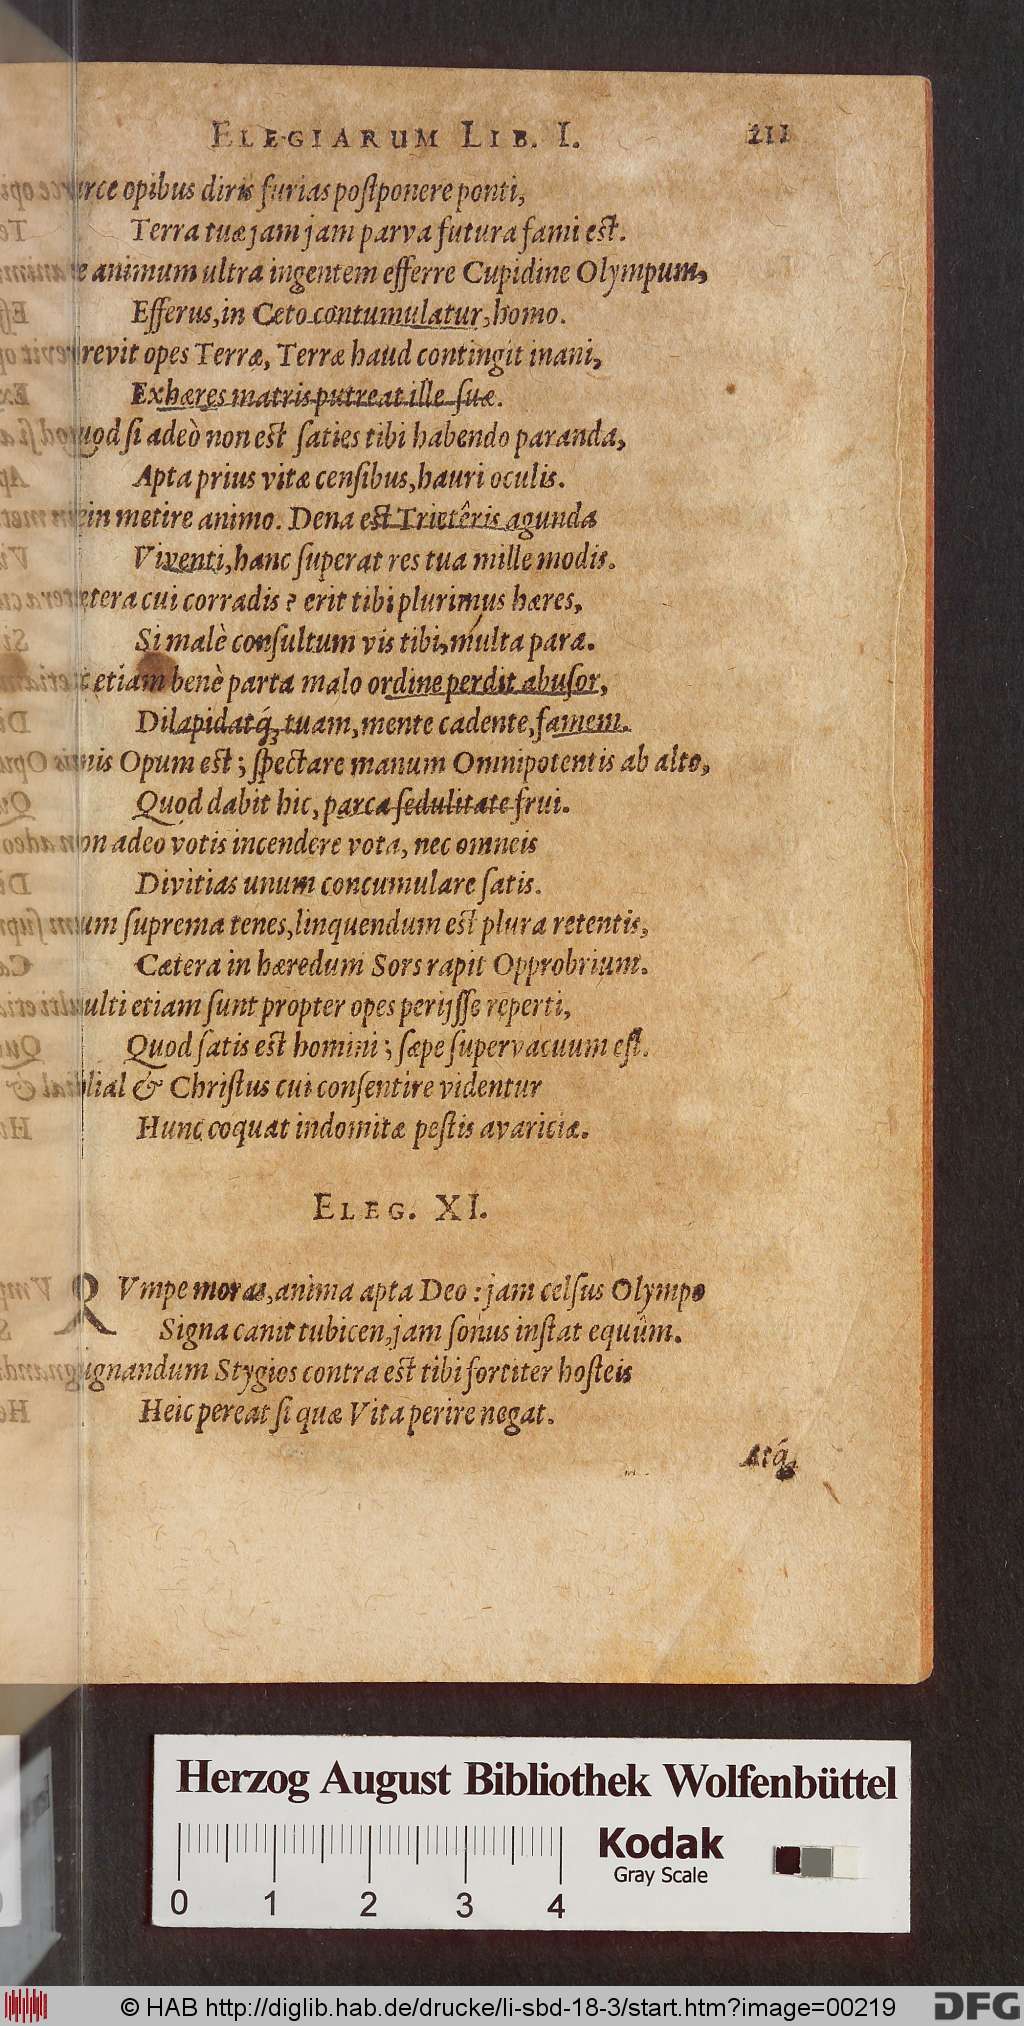 ELEGIARUM LIB. I. 211
opibus diris furias postponere ponti,
Terra tuæ jam jam parva futura fami est.
animum ultra ingentem efferre Cupidine Olympum,
Efferus, in Ceto contumulatur, homo.
revit opes Terræ, Terræ haud contingit inani,
Exhæres matris putreat ille suæ.
uod si adeò non est saties tibi habendo paranda,
Apta prius vitæ censibus, hauri oculis.
ein metire animo. Dena est Trietêris agunda
Viventi, hanc superat res tua mille modis.
etera cui corradis? erit tibi plurimus hæres,
Si malè consultum vis tibi, multa para.
etiam benè parta malo ordine perdit abusor,
Dilapidatq́; tuam, mente cadente, famem.
nis Opum est; spectare manum Omnipotentis ab alto,
Quod dabit hic, parca sedulitate frui.
on adeo votis incendere vota, nec omneis
Divitias unum concumulare satis.
um suprema tenes, linquendum est plura retentis,
Cætera in hæredum Sors rapit Opprobrium.
ulti etiam sunt propter opes perijsse reperti,
Quod satis est homini; sæpe supervacuum est.
lial & Christus cui consentire videntur
Hunc coquat indomitæ pestis avariciæ.
ELEG. XI.
RVmpe moras, anima apta Deo: jam celsus Olympo
Signa canit tubicen, jam sonus instat equûm.
ugnandum Stygios contra est tibi fortiter hosteis
Heic pereat si quæ Vita perire negat.
Atq́;
Herzog August Bibliothek Wolfenbüttel
Kodak
Gray Scale
0 1 2 3 4
© HAB http://diglib.hab.de/drucke/li-sbd-18-3/start.htm?image=00219
DFG